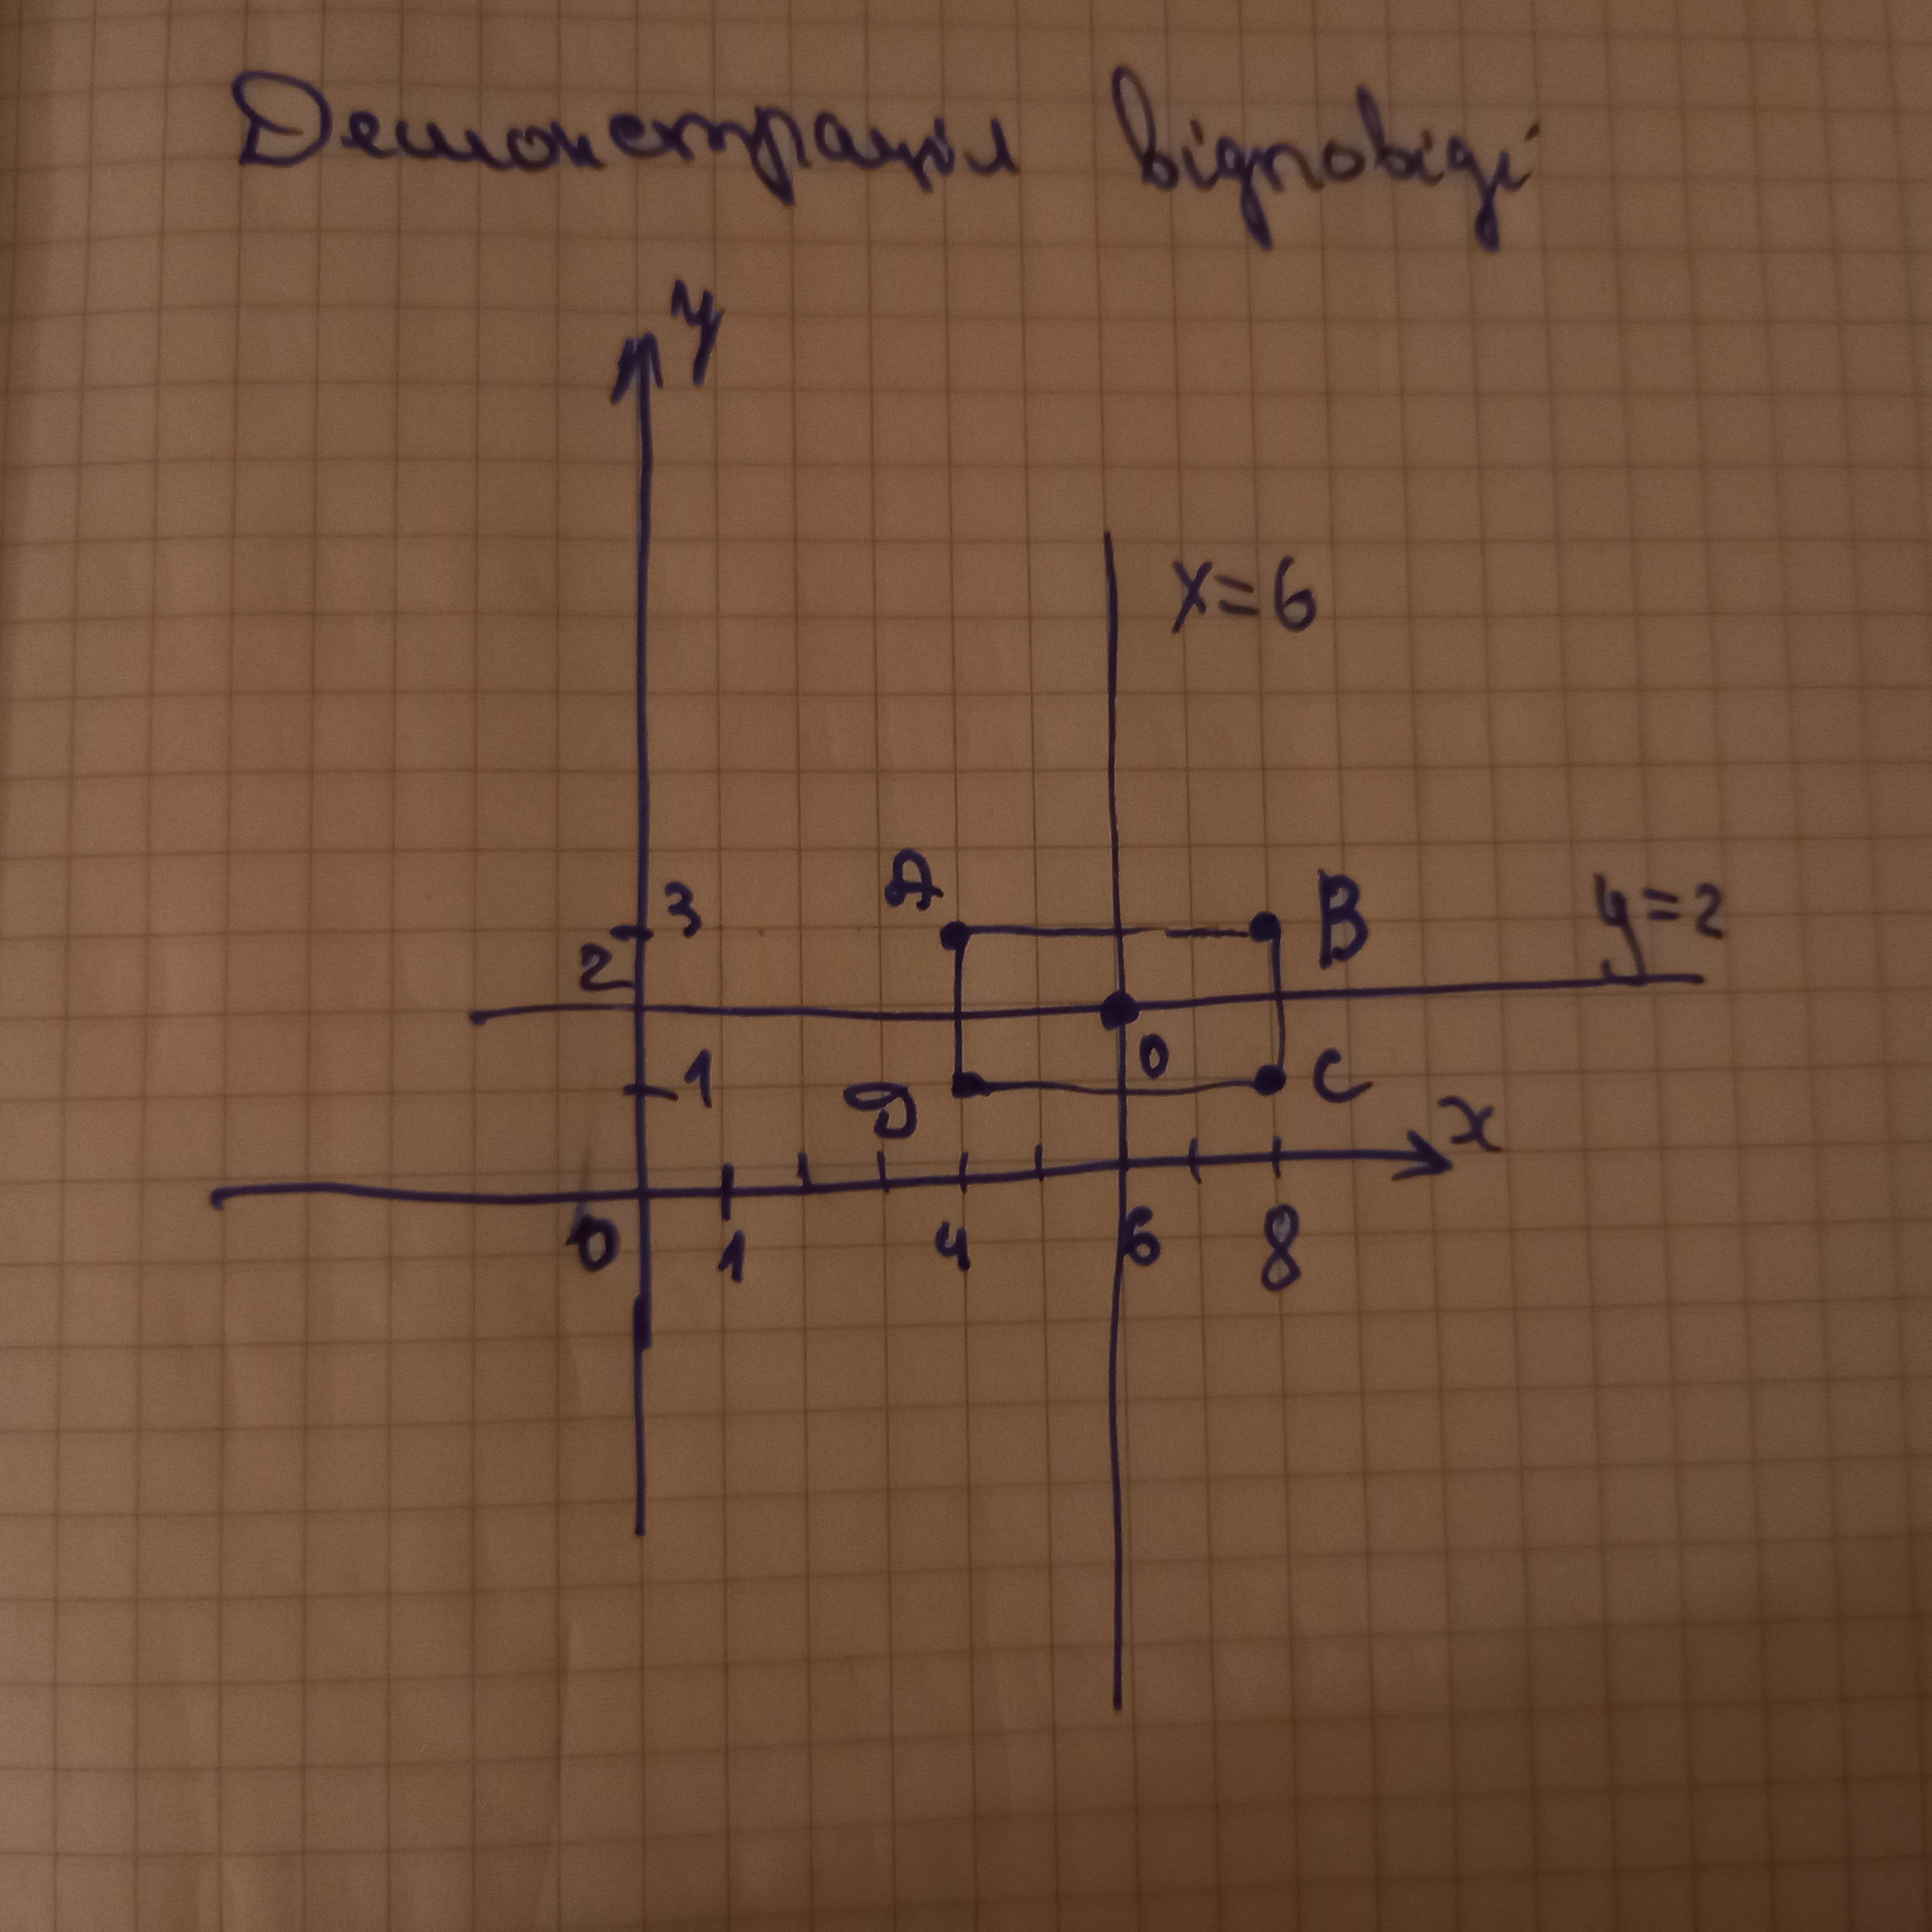 Демонстрація відповіді
y
x=6
A
B
y=2
3
2
1
D
O
C
x
0
1
4
6
8